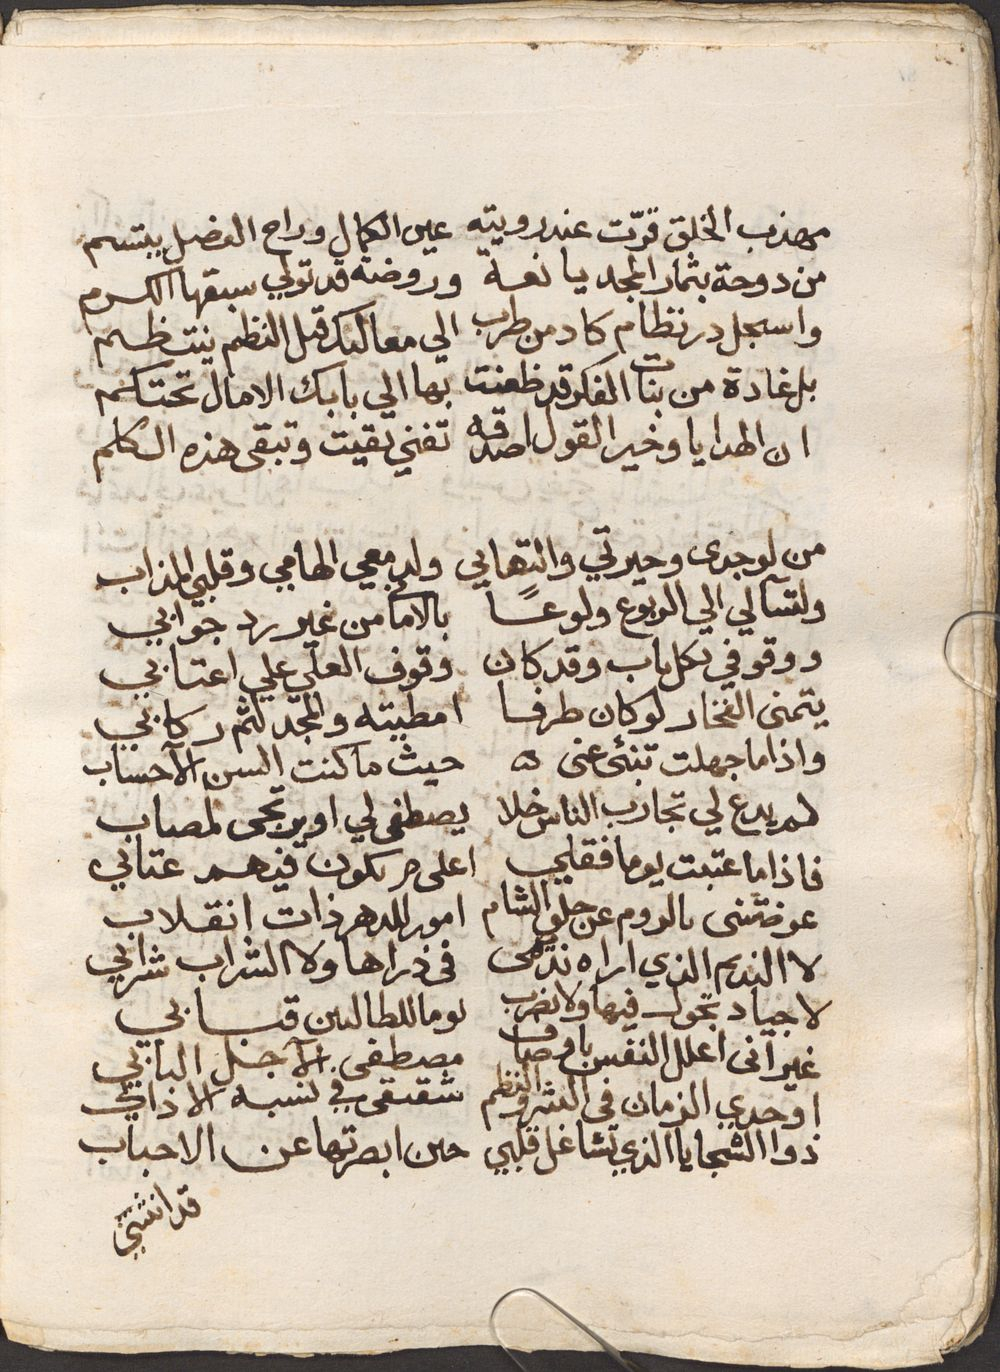 مهذب الخلق قرّت عند رويته عين الكمال وراح الفضل يبتسم
من دوحة بثمار المجد يانعة وروضة قد تولي سبقها الكرم
واسجل در نظام كاد من طرب الي معاليك قبل النظم ينتظم
بل غادة من بنات الفكر قد ظعنت بها الي بابك الامال تحتكم
ان الهدايا وخير القول اصدقه تفني تقيت وتبقى هذه الكلم
من لوجدى وحيرتي والتهابي ولدمعي الهامي وقلبي المذاب
ولتسآلي الي الربوع ولوعًا بالاما من غير رد جوابي
ووقوفي بكل باب وقد كان وقوف العلي علي اعتابي
يتمنى الفخار لو كان طرفا امطيته والمجد لثم ركابي
واذا ما جهلت تنبئ عنى حيث ما كنت السن الاحساب
لم يدع لي تجارب الناس خلا يصطفى لي او يرتجى لمصاب
فاذا ما عتبت يوما فقل لي اعلى من يكون فيهم عتابي
عوضتنى بالروم عن جلق الشام امور للدهر ذات انقلاب
لا النديم الذي اراه نديمى فى ذراها ولا الشراب شرابي
لا جياد تجول فيها ولا تضرب يوما للطالبين قبابي
غير انى اعلل النفس باوصاف مصطفى الاجل البابي
اوحدي الزمان فى النثر والنظم شقيقى في نسبه الاذابي
ذوا السجايا الذي تشاغل قلبي حين ابصرتها عن الاحباب
قد انثنى